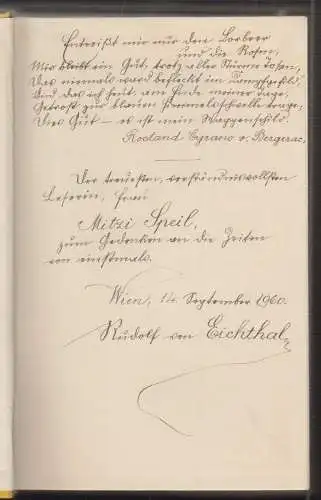 Entreißt mir nur den Lorbeer
und die Rosen,
Mir bleibt ein Gut, trotz aller Stürme Tosen,
Das niemals ward befleckt im Kampfgefild
Und das ich heut, am Ende meiner Tage,
Getrost zur blauen Himmelsschwelle trage;
Dies Gut – es ist mein Wappenschild.
Rostand, Cyrano v. Bergerac.
Der treuesten, verständnisvollsten
Leserin, Frau
Mitzi Speil,
zum Gedenken an die Zeiten
von einstmals.
Wien, 14. September 1960.
Rudolf von Eichthal